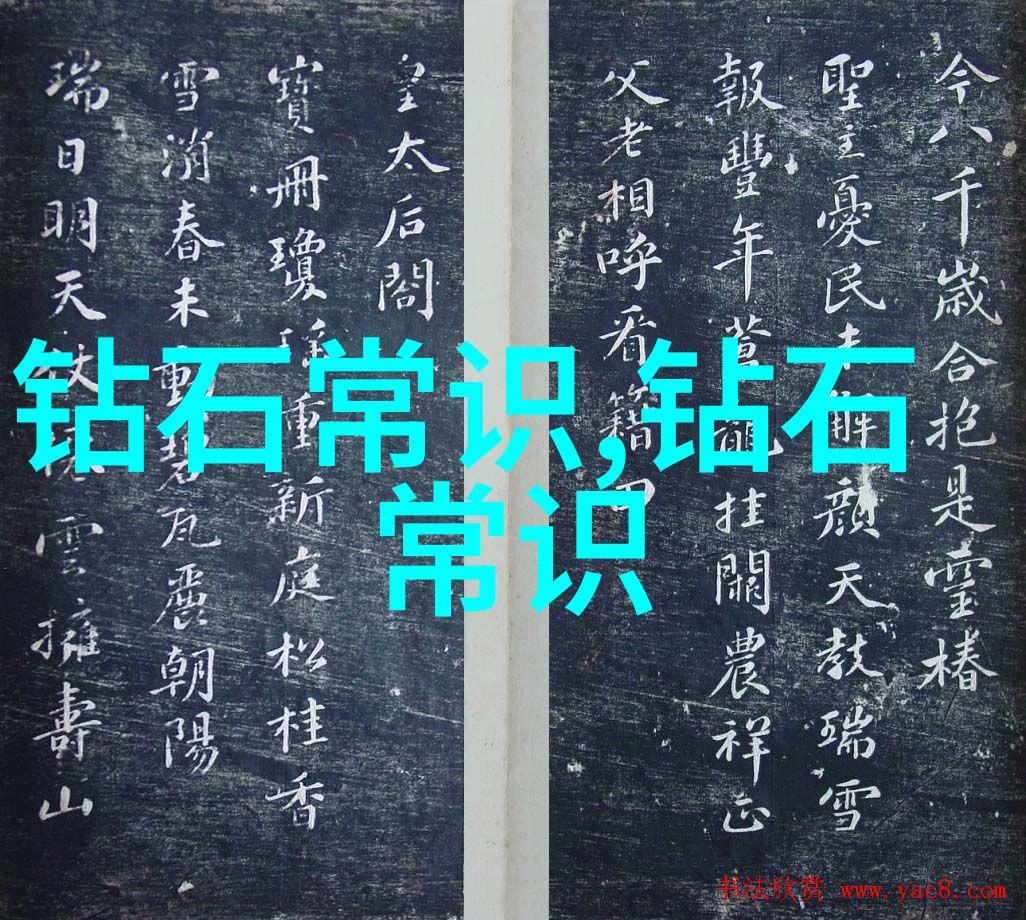 今八千歲合抱是靈椿
聖主憂民未解顏天教瑞雪
報豐年蒼龍挂闕農祥正
父老相呼看籍田
皇太后閣
寶冊瓊瑤重新庭松桂香
雪消春未動碧瓦麗朝陽
瑞日明天仗雲擁壽山
钻石常识,钻石
常识
书法欣赏 www.yac8.com